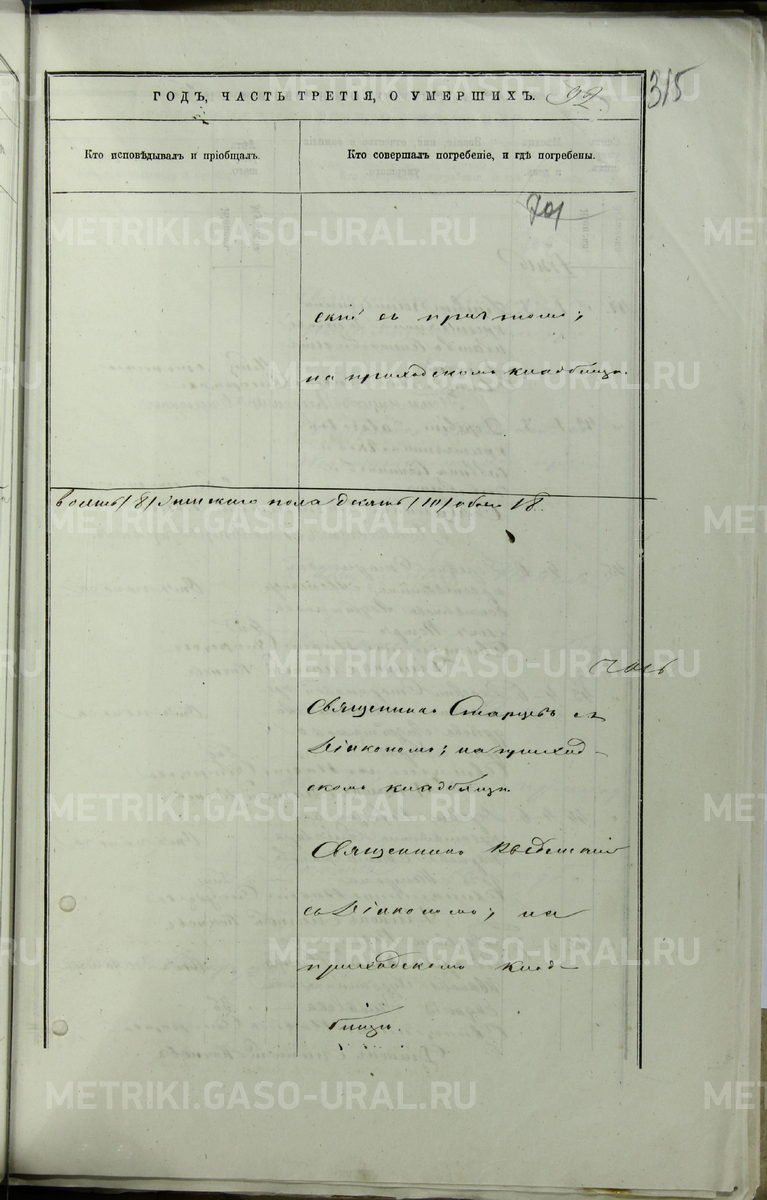 315
ГОДЪ, ЧАСТЬ ТРЕТІЯ, О УМЕРШИХЪ. 92.
Кто исповѣдывалъ и пріобщалъ.
Кто совершалъ погребеніе, и гдѣ погребены.
скій съ причтомъ;
на приходскомъ кладбищѣ.
восемь /8/ женскаго пола десять /10/ обоего 18.
Священникъ Старцевъ съ
Діакономъ; на приход-
скомъ кладбищѣ.
Священникъ
съ Діакономъ; на
приходскомъ клад-
бищѣ.
METRIKI.GASO-URAL.RU